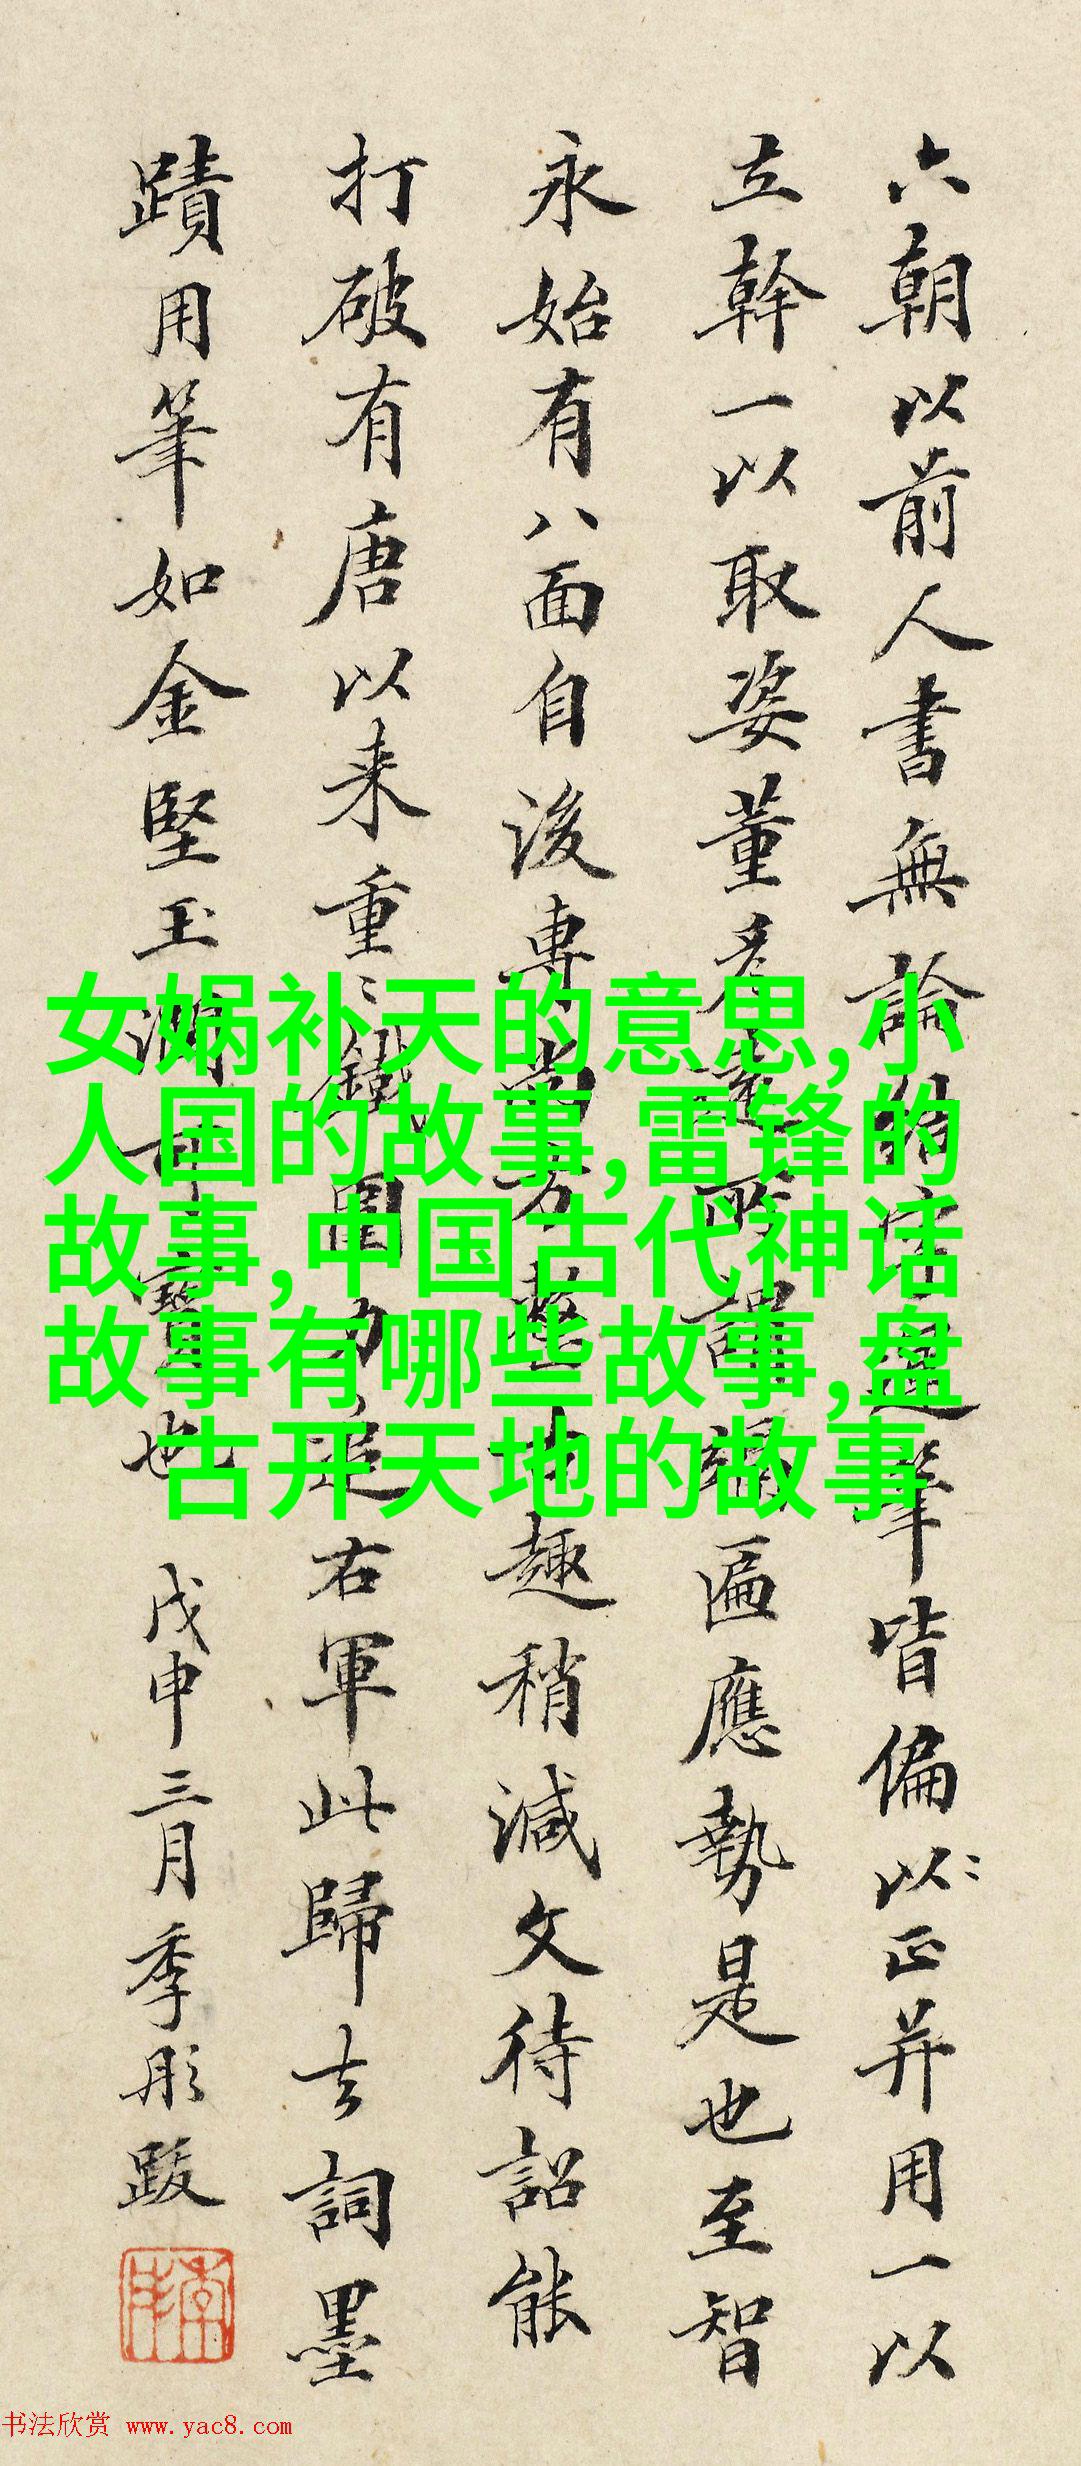 六朝以前人書無論結字運筆皆偏以正并用一以
立幹一以取姿董彥遠所謂匾應勢是也至智
永始有八面自後專尚方整古趣稍減文待詔能
打破有唐以来重〻鐵圍力追右軍此歸去詞墨
蹟用筆如金堅玉潤可寶也 戊申三月季彤跋
女娲补天的意思,小
人国的故事,雷锋的
故事,中国古代神话
故事有哪些故事,盘
古开天地的故事
书法欣赏 www.yac8.com